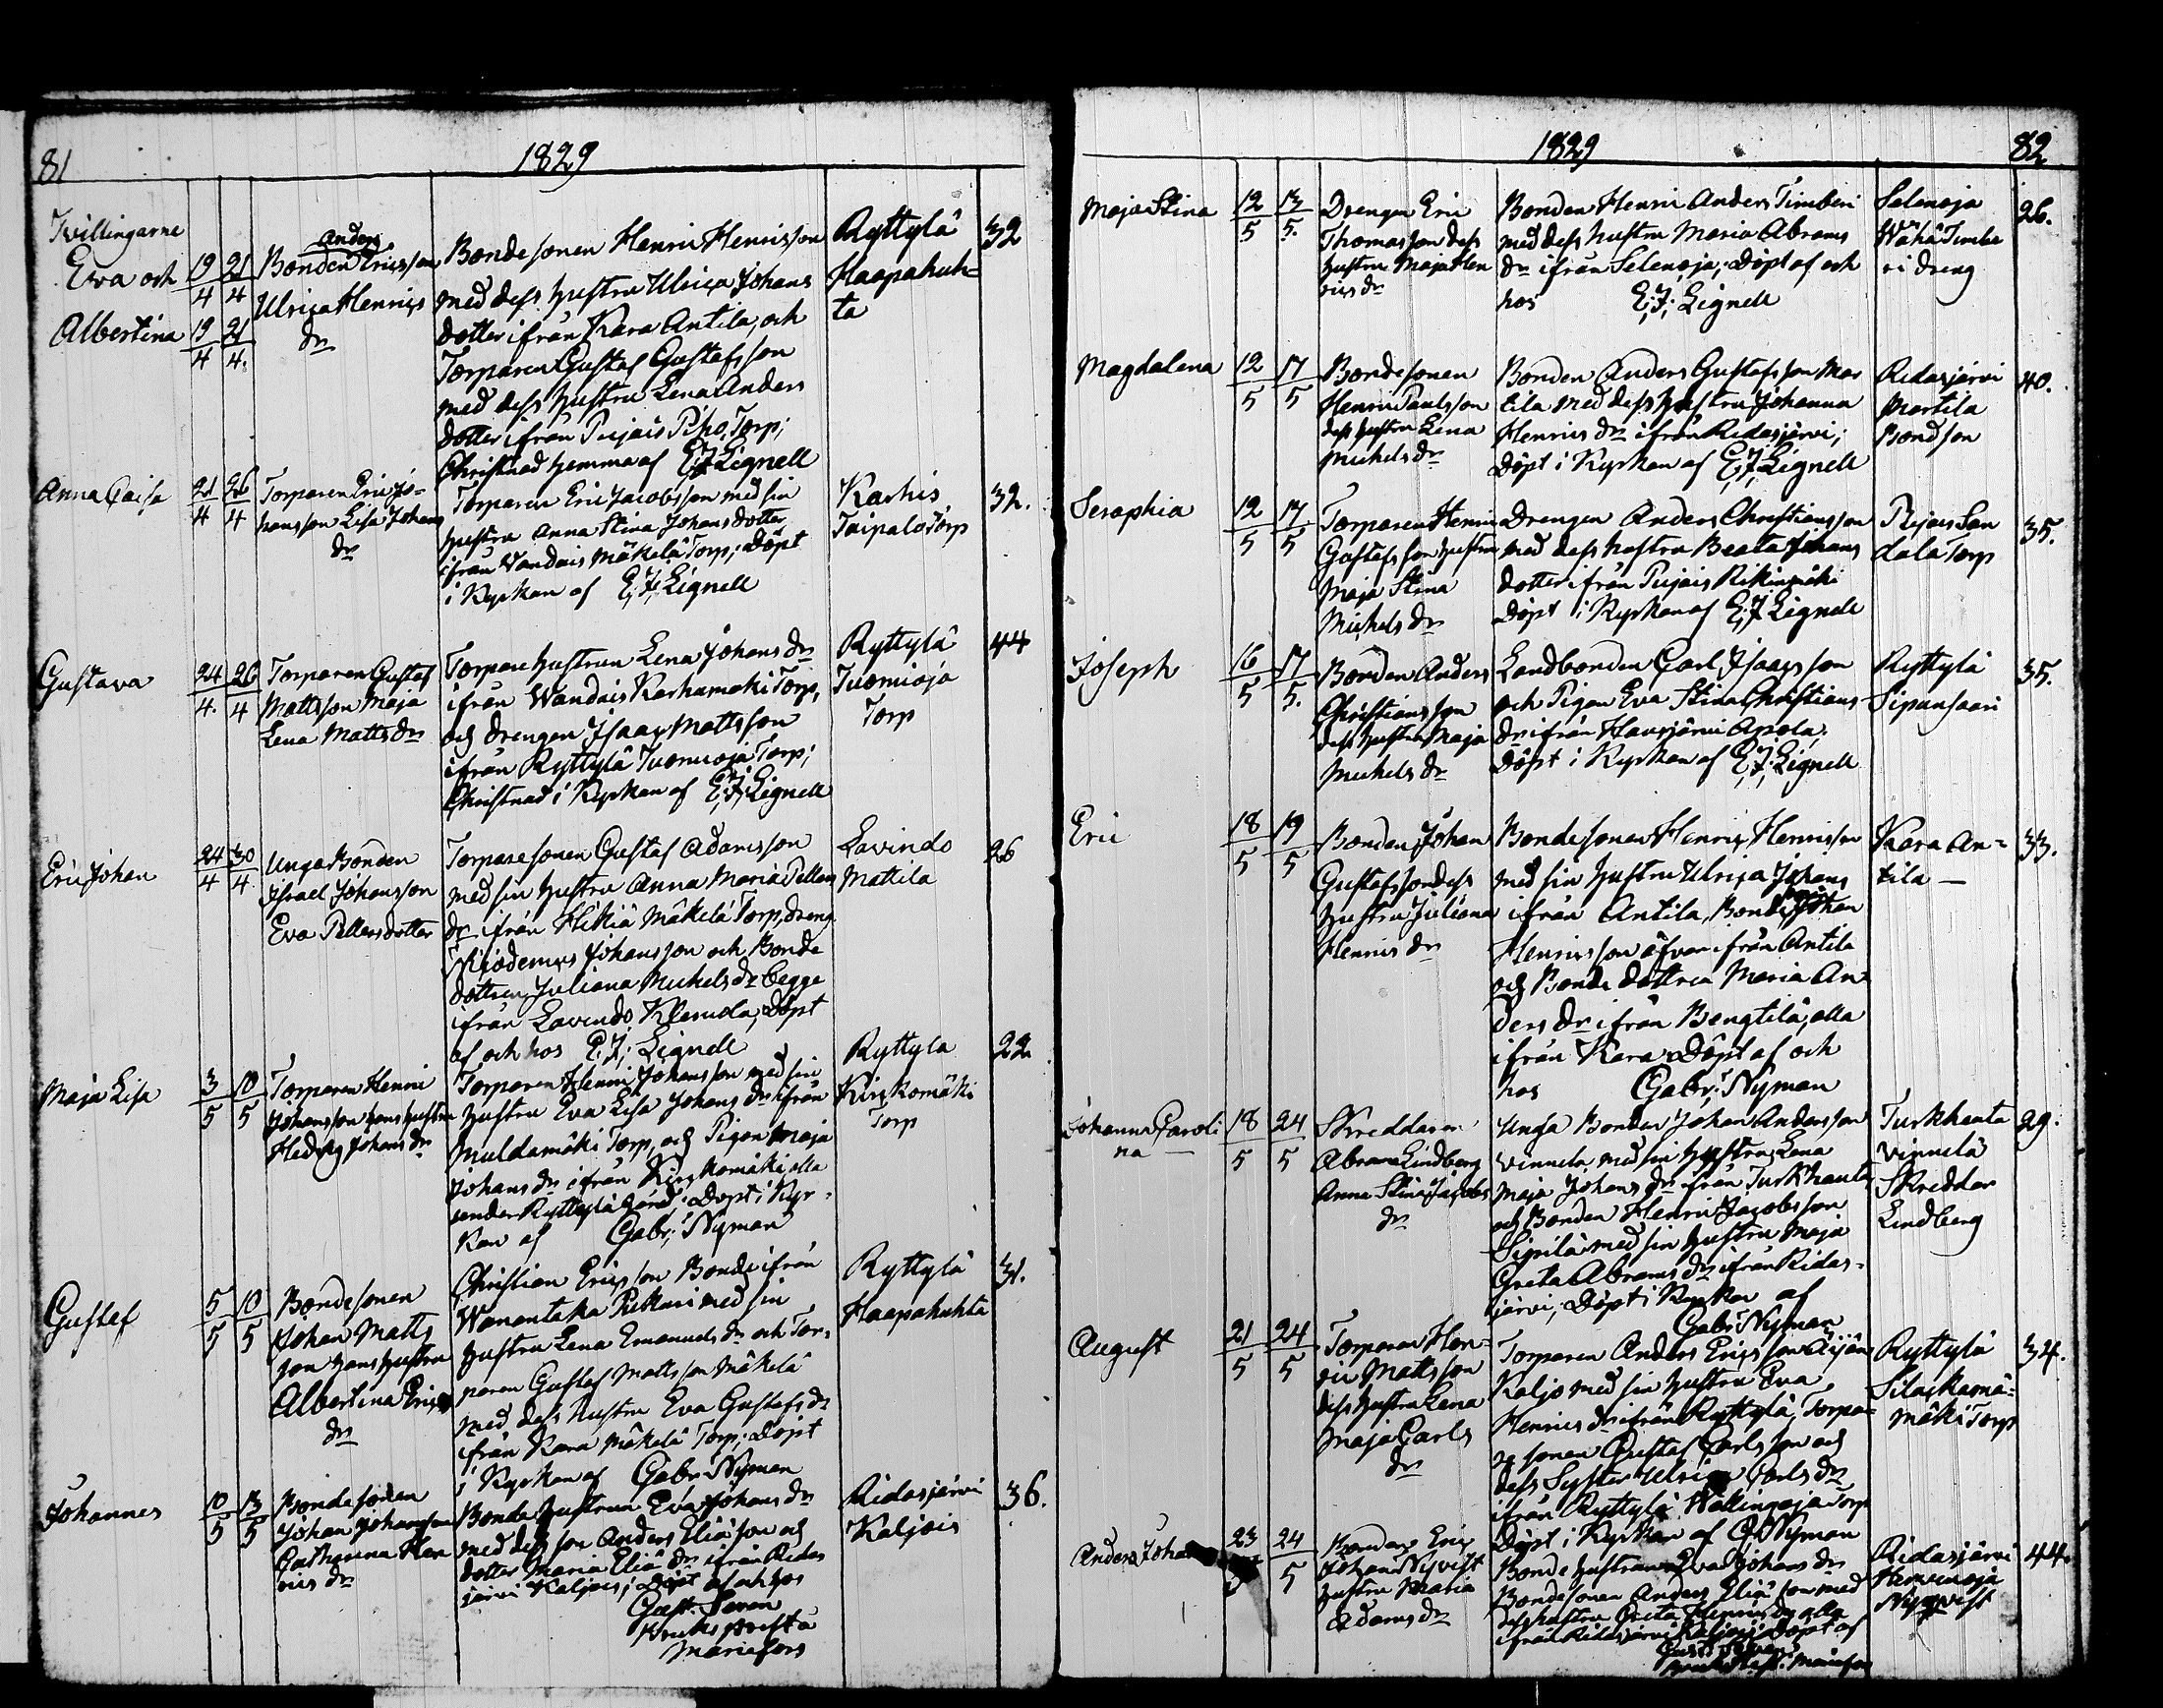 81
1829
Tvillingarne
Eva och
19/4 21/4
Albertina
19/4 21/4.
Anders
Bonden Ericsson
Ulrica Henrics
dr
Bondesonen Henric Henricsson
med dess hustru Ulrica Johans
dotter ifrån Kara Antila, och
Torparen Gustaf Gustafsson
med dess hustru Lena Anders
dotter ifrån Pujais Piho Torp;
Christnad hemma af E;J;Lignell
Ryttylä
Haapahuh=
ta
32
Anna Caisa
21/4 26/4
Torparen Eric Jo-
hansson Lisa Johans
dr
Torparen Eric Jacobsson med sin
hustru Anna Stina Johansdotter
ifrån Wandais Mäkelä Torp; Döpt
i Kyrkan af E;J;Lignell
Karhis
Taipalo Torp
32.
Gustava
24/4. 26/4
Torparen Gustaf
Mattsson Maja
Lena Matts dr
Torpare hustrun Lena Johans dr
ifrån Wandais Karhamäki Torp,
och Drengen Isaac Mattsson
ifrån Ryttylä Tuomioja Torp;
Christnad i Kyrkan af E;J;Lignell
Ryttylä
Tuomioja
Torp
44
Eric Johan
24/4 30/4
Unga Bonden
Israel Johansson
Eva Pettersdotter
Torparesonen Gustaf Adamsson
med sin hustru Anna Maria Petters
dr ifrån Hikiä Mäkelä Torp, dreng
Nicodemus Johansson och Bonde
dottren Juliana Michels dr begge
ifrån Lavindo Klemola, Döpt
af och hos E;J; Lignell
Lavindo
Mattila
26
Maja Lisa
3/5 10/5
Torparen Henric
Johansson hans hustru
Hedvig Johans dr
Torparen Henric Johansson med sin
hustru Eva Lisa Johans dr ifrån
Muldamäki Torp, och Pigan Maja
Johans dr ifrån Kirkkomäki alla
under Ryttylä Gård; Döpt i Kyr-
kan af Gabr; Nyman
Ryttyla
Kirkkomäki
Torp
22
Gustaf
5/5 10/5
Bondesonen
Johan Matts
son hans hustru
Albertina Erics
dr
Christian Ericsson Bonde ifrån
Wanantaka Pietkari med sin
hustru Lena Emanuels dr och Tor-
paren Gustaf Mattsson Mäkelä
med dess hustru Eva Gustafs dr
ifrån Kara Mäkelä Torp; Döpt
i Kyrkan af Gabr Nyman
Ryttylä
Haapahuhta
31.
Johannes
10/5 13/5
Bondesonen
Johan Johansson
Catharina Hen
rics dr
Bonde hustrun Eva Johans dr
med dess son Anders Eliäson och
dotter Maria Eliä dr ifrån Ridas
järvi Kaljois; Döpt af och hos
Gust. Seven
Bruks prest å
Mariefors
Ridasjärvi
Kaljois
36.
1829
82
Maja Stina
12/5 13/5.
Drengen Eric
Thomasson dess
hustru Maja Hen
rics dr
Bonden Henric Anders Timberi
med dess hustru Maria Abrams
dr ifrån Selenoja; Döpt af och
hos E;J; Lignell
Selenoja
Wähä Timbe
ri dreng
26.
Magdalena
12/5 17/5
Bondesonen
Henric Paulsson
dess hustru Lena
Michels dr
Bonden Anders Gustafsson Mar
tila med dess hustru Johanna
Henrics dr ifrån Ridasjärvi;
Döpt i Kyrkan af E;J;Lignell
Ridasjärvi
Martila
Bondson
40.
Seraphia
12/5 17/5
Torparen Henric
Gustafsson hustru
Maja Stina
Michels dr
Drengen Anders Christiansson
med dess hustru Beata Johans
dotter ifrån Pujais Rikinmäki
Döpt i Kyrkan af E;J Lignell
Pujais San
dala Torp
35.
Joseph
16/5 17/5.
Bonden Anders
Christiansson
dess hustru Maja
Michels dr
Landbonden Carl Isaacsson
och Pigan Eva Stina Christians
dr ifrån Hausjärvi Apola;
Döpt i Kyrkan af E;J;Lignell
Ryttylä
Sipunsaari
35.
Eric
18/5 19/5
Bonden Johan
Gustafsson dess
hustru Juliana
Henrics dr
Bondesonen Henric Henricsson
med sin hustru Ulrica Johans
ifrån Antila, Bonde Johan
Henricsson äfven ifrån Antila
och Bonde dottren Maria An
ders dr ifrån Bengtilä, alla
ifrån Kara. Döpt af och
hos Gabr; Nyman
Kara An=
tila —
33.
Johanna Caroli
na —
18/5 24/5
Skreddaren
Abram Lindberg
Anna Stina Jacobs
dr
Unga Bonden Johan Andersson
Vinnela med sin hustru Lena
Maja Johans dr ifrån Turkhauta
och Bonden Henric Jacobsson
Sipilä med sin hustru Maja
Greta Abrams dr ifrån Ridas-
järvi; Döpt i Kyrkan af
Gabr: Nyman
Turkhauta
Vinnelä
Skreddar
Lindberg
29.
August
21/5 24/5
Torparen Hen-
ric Mattsson
dess hustru Lena
Maja Carls
dr
Torparen Anders Ericsson Äijän
Kaljo med sin hustru Eva
Henrics dr ifrån Ryttylä, Torpa-
re sonen Gustaf Carlsson och
dess Syster Ulrica Carls dr
ifrån Ryttylä Wallingoja Torp
Döpt i Kyrkan af G Nyman
Ryttylä
mäki Torp
34.
Anders Johan
23 24/5
Bonden Eric
Johan Nyqvist
hustru Maria
Adams dr
Bonde hustrun Eva Johans dr
Bondesonen Anders Eliä son med
dess hustru Greta Henrics dr alla
ifrån Ridasjärvi Kaljois; Döpt af
Gust: Seven
Ridasjärvi
Nyqvist
44.